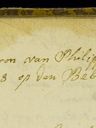 on van Philip
8 op den Beb